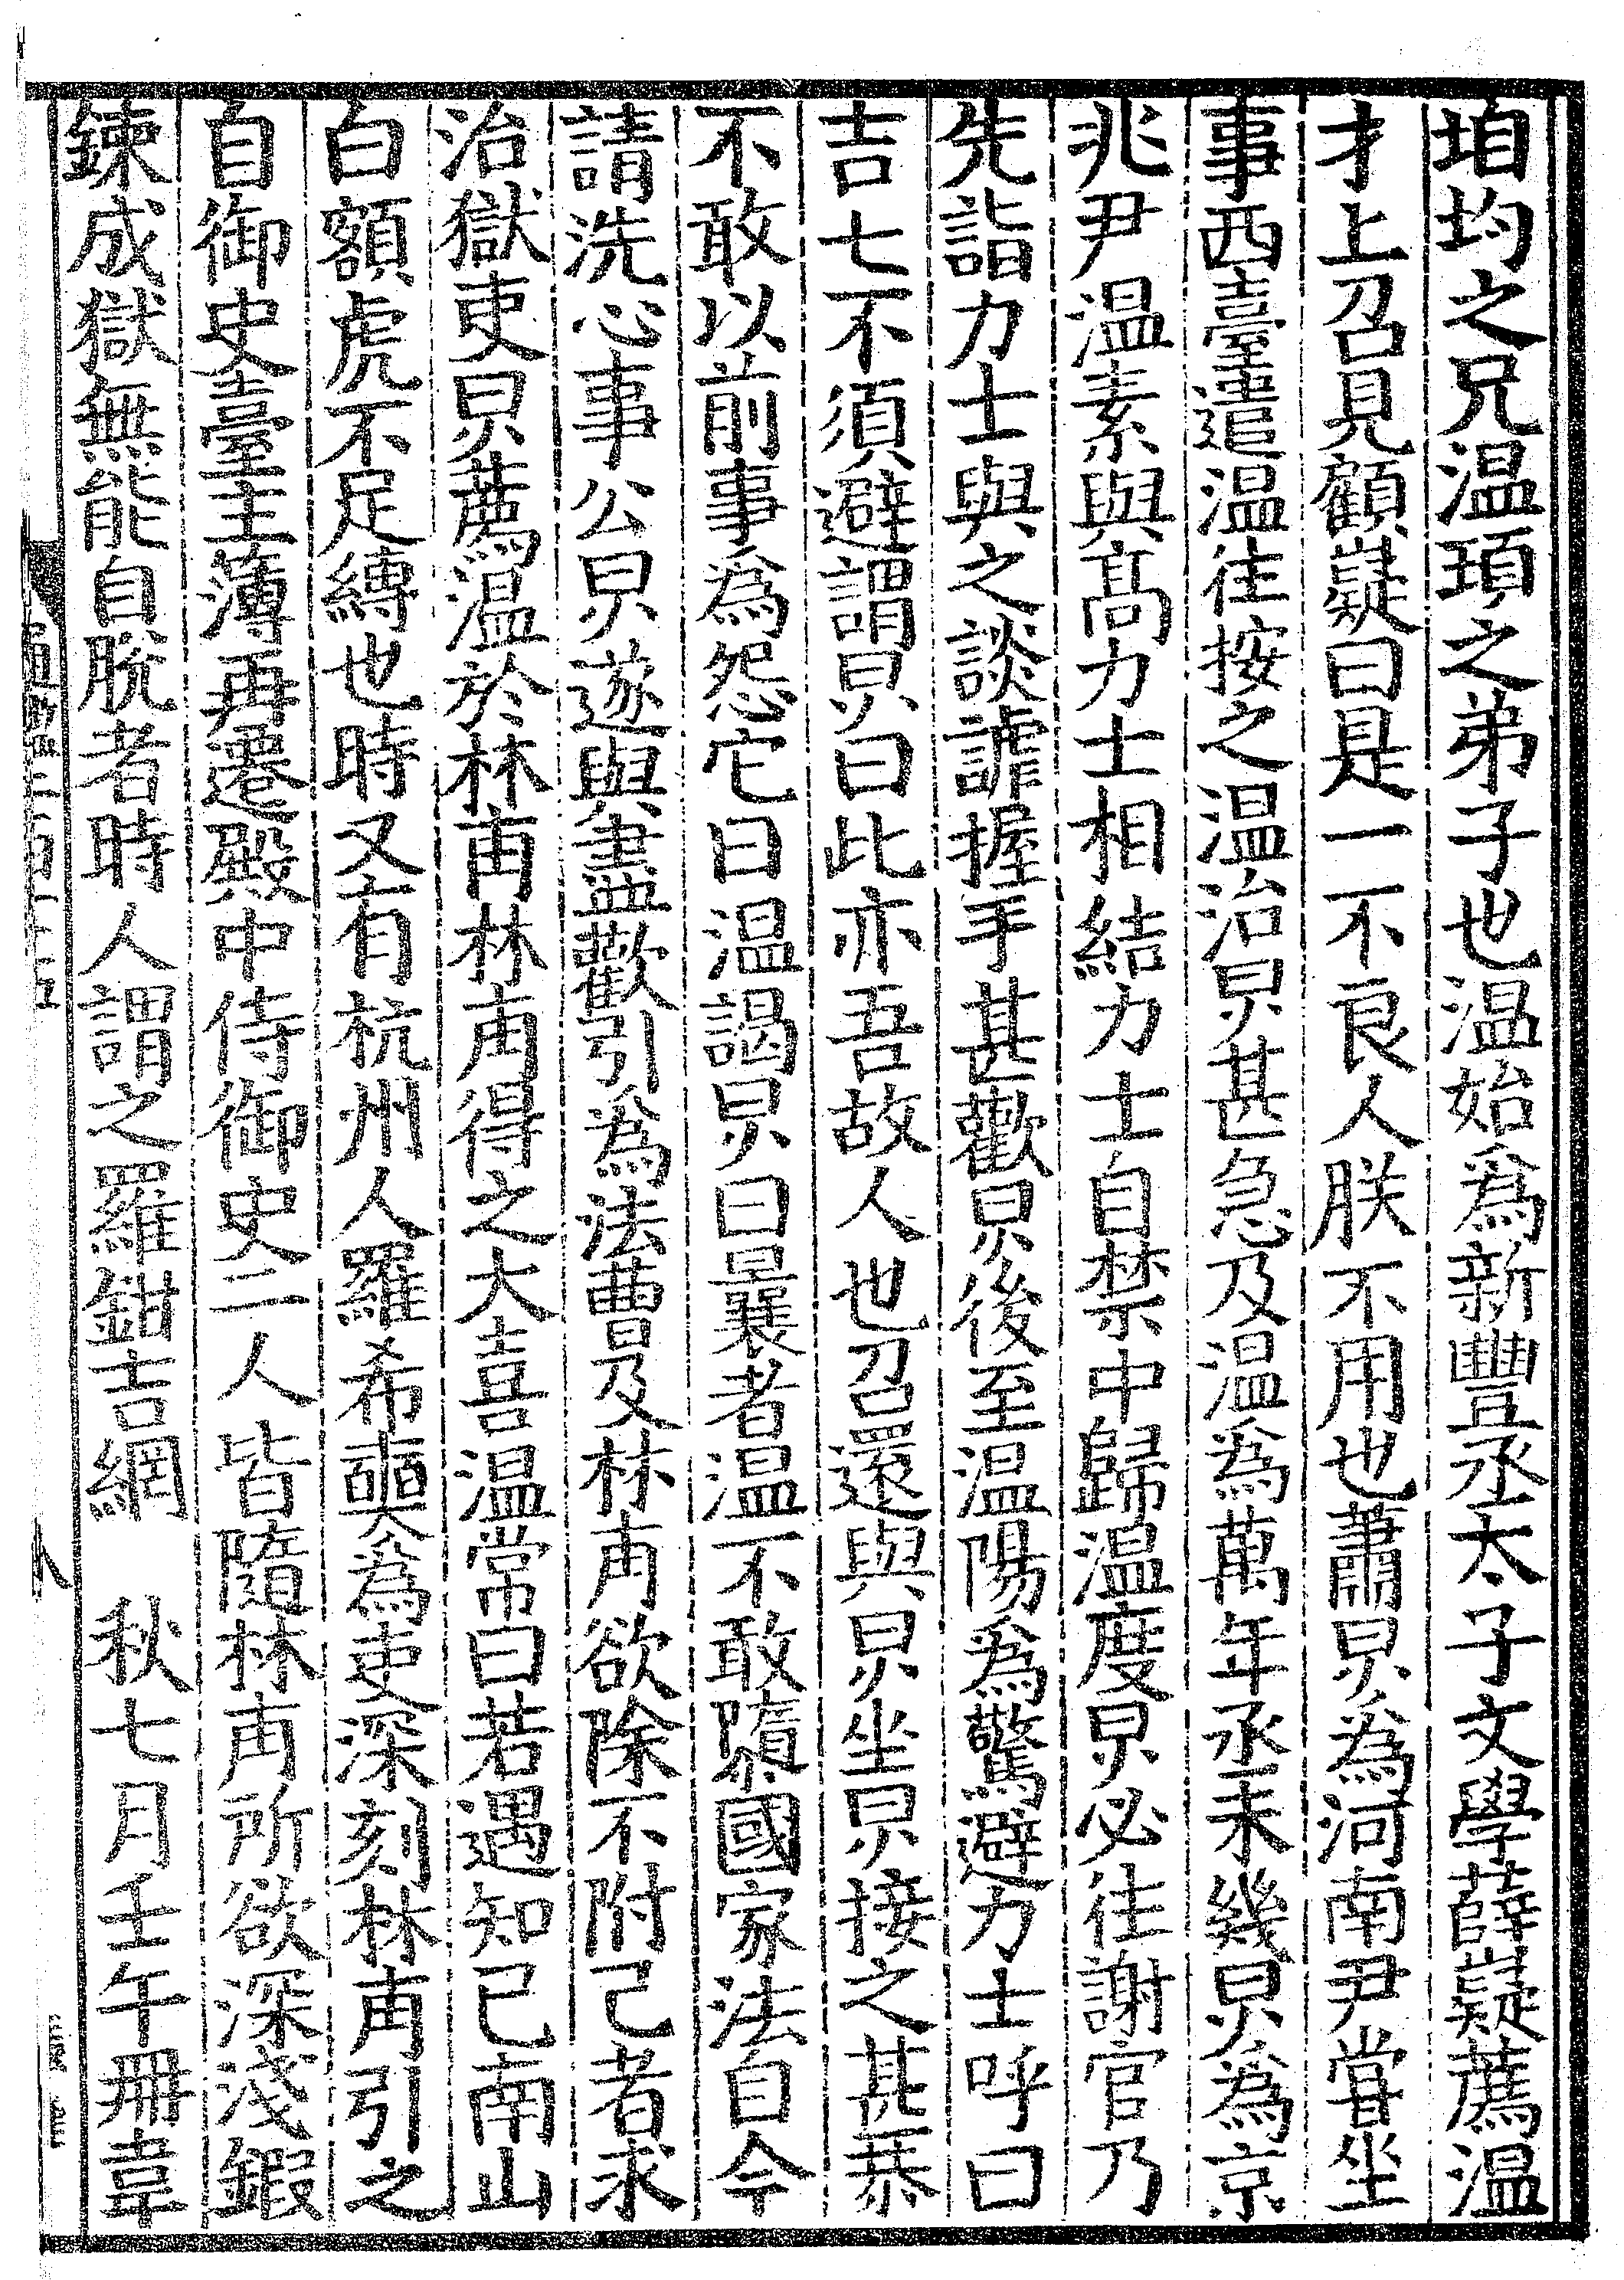 垍均之兄温頊之弟子也温始爲新豐丞太子文學薛嶷薦温
才上召見顧嶷曰是一不良人朕不用也蕭炅爲河南尹甞坐
事西臺遣温往按之温治炅甚急及温爲萬年丞未幾炅爲京
兆尹温素與髙力士相結力士自禁中歸温度炅必往謝官乃
先詣力士與之談謔握手甚歡炅後至温陽爲驚避力士呼曰
吉七不須避謂炅曰此亦吾故人也召還與炅坐炅接之甚恭
不敢以前事爲怨它日温謁炅曰曩者温不敢隳國家法自今
請洗心事公炅遂與盡歡引爲法曹及林甫欲除不附己者求
治獄吏炅薦温於林甫林甫得之大喜温常曰若遇知已南山
白額虎不足縛也時又有杭州人羅希奭爲吏深刻林甫引之
自御史臺主薄再遷殿中侍御史二人皆隨林甫所欲深淺鍛
鍊成獄無能自脫者時人謂之羅鉗吉網　秋七月壬午冊韋